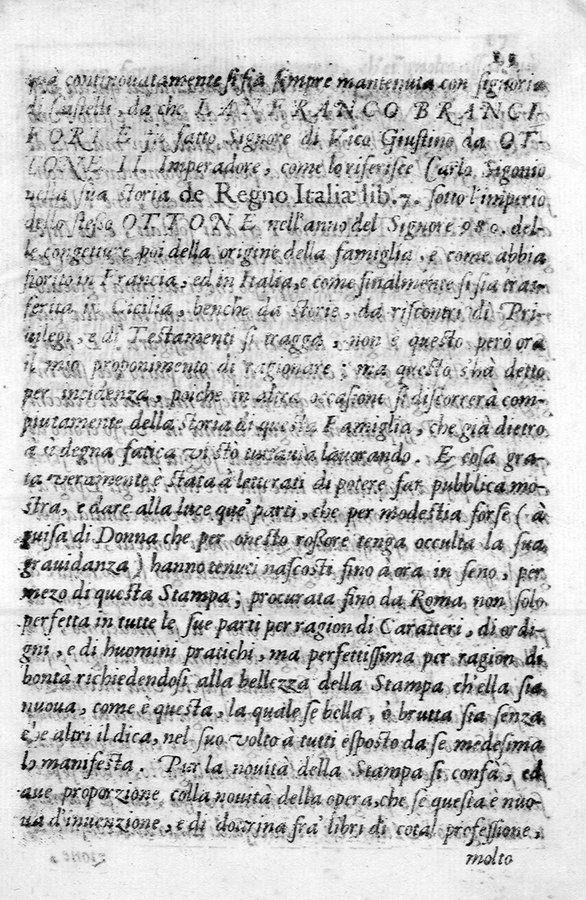 continouatamente si sia sempre mantenuta con signoria
di Castelli, da che LANFRANCO BRANCI-
FORTE fu fatto Signore di Vico Giustino da OT-
TONE II. Imperadore, come lo riferisce Carlo Sigonio
nella sua storia de Regno Italiæ lib. 7. sotto l'imperio
dello stesso OTTONE nell'anno del Signore 980. del-
le congetture poi della origine della famiglia, e come abbia
fiorito in Francia, ed in Italia, e come finalmente si sia tras-
ferita in Cicilia, benche da storie, da riscontri di Pri-
uilegi, e di Testamenti si tragga, non è questo però ora
il mio proponimento di ragionare; ma questo s'hà detto
per incidenza, poiche in altra occasione si discorrerà com-
piutamente della storia di questa Famiglia, che già dietro
à sì degna fatica vi sto tuttauia lauorando. E cosa gra-
ta veramente è stata à letterati di potere far pubblica mo-
stra, e dare alla luce que' parti, che per modestia forse (à
guisa di Donna che per onesto rossore tenga occulta la sua
grauidanza) hanno tenuti nascosti fino à ora in seno, per
mezo di questa Stampa; procurata fino da Roma non solo
perfetta in tutte le sue parti per ragion di Caratteri, di ordi-
gni, e di huomini pratichi, ma perfettissima per ragion di
bontà richiedendosi alla bellezza della Stampa ch'ella sia
nuoua, come è questa, la quale se bella, ò brutta sia senza
che altri il dica, nel suo volto à tutti esposto da se medesima
lo manifesta. Per la nouità della Stampa si confà, ed
aue proporzione colla nouità della opera, che se questa è nuo-
ua d'inuenzione, e di dottrina frà libri di cotal professione,
molto